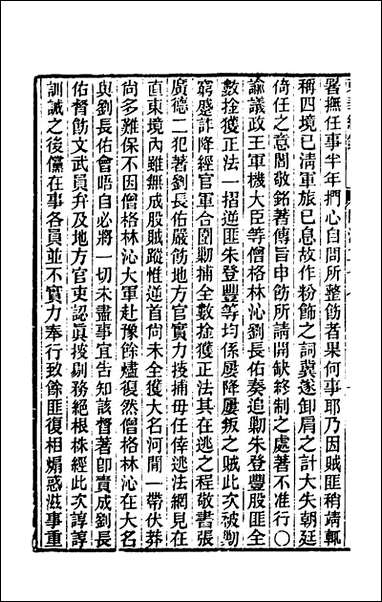 署撫任事半年捫心自問所整飭者果何事耶乃因賊匪稍靖輒
稱四境已清軍旅已息故作粉飾之詞冀遂卸肩之計大失朝廷
倚任之意閻敬銘著傳旨申飭所請開缺終制之處著不准行〇
諭議政王軍機大臣等僧格林沁劉長佑奏追勦朱登豐股匪全
數捦獲正法一招逆匪朱登豐等均係屢降屢叛之賊此次被勦
窮蹙詐降經官軍合圍勦捕全數捦獲正法其在逃之程敬書張
廣德二犯著劉長佑嚴飭地方官實力搜捕毋任倖逃法網見在
直東境內雖無成股賊蹤惟逆首尙未全獲大名河閒一帶伏莽
尙多難保不因僧格林沁大軍赴豫餘燼復然僧格林沁在大名
與劉長佑會晤自必將一切未盡事宜告知該督著卽責成劉長
佑督飭文武員弁及地方官吏認眞搜剔務絕根株經此次諄諄
訓誡之後儻在事各員並不實力奉行致餘匪復相煽惑滋事重